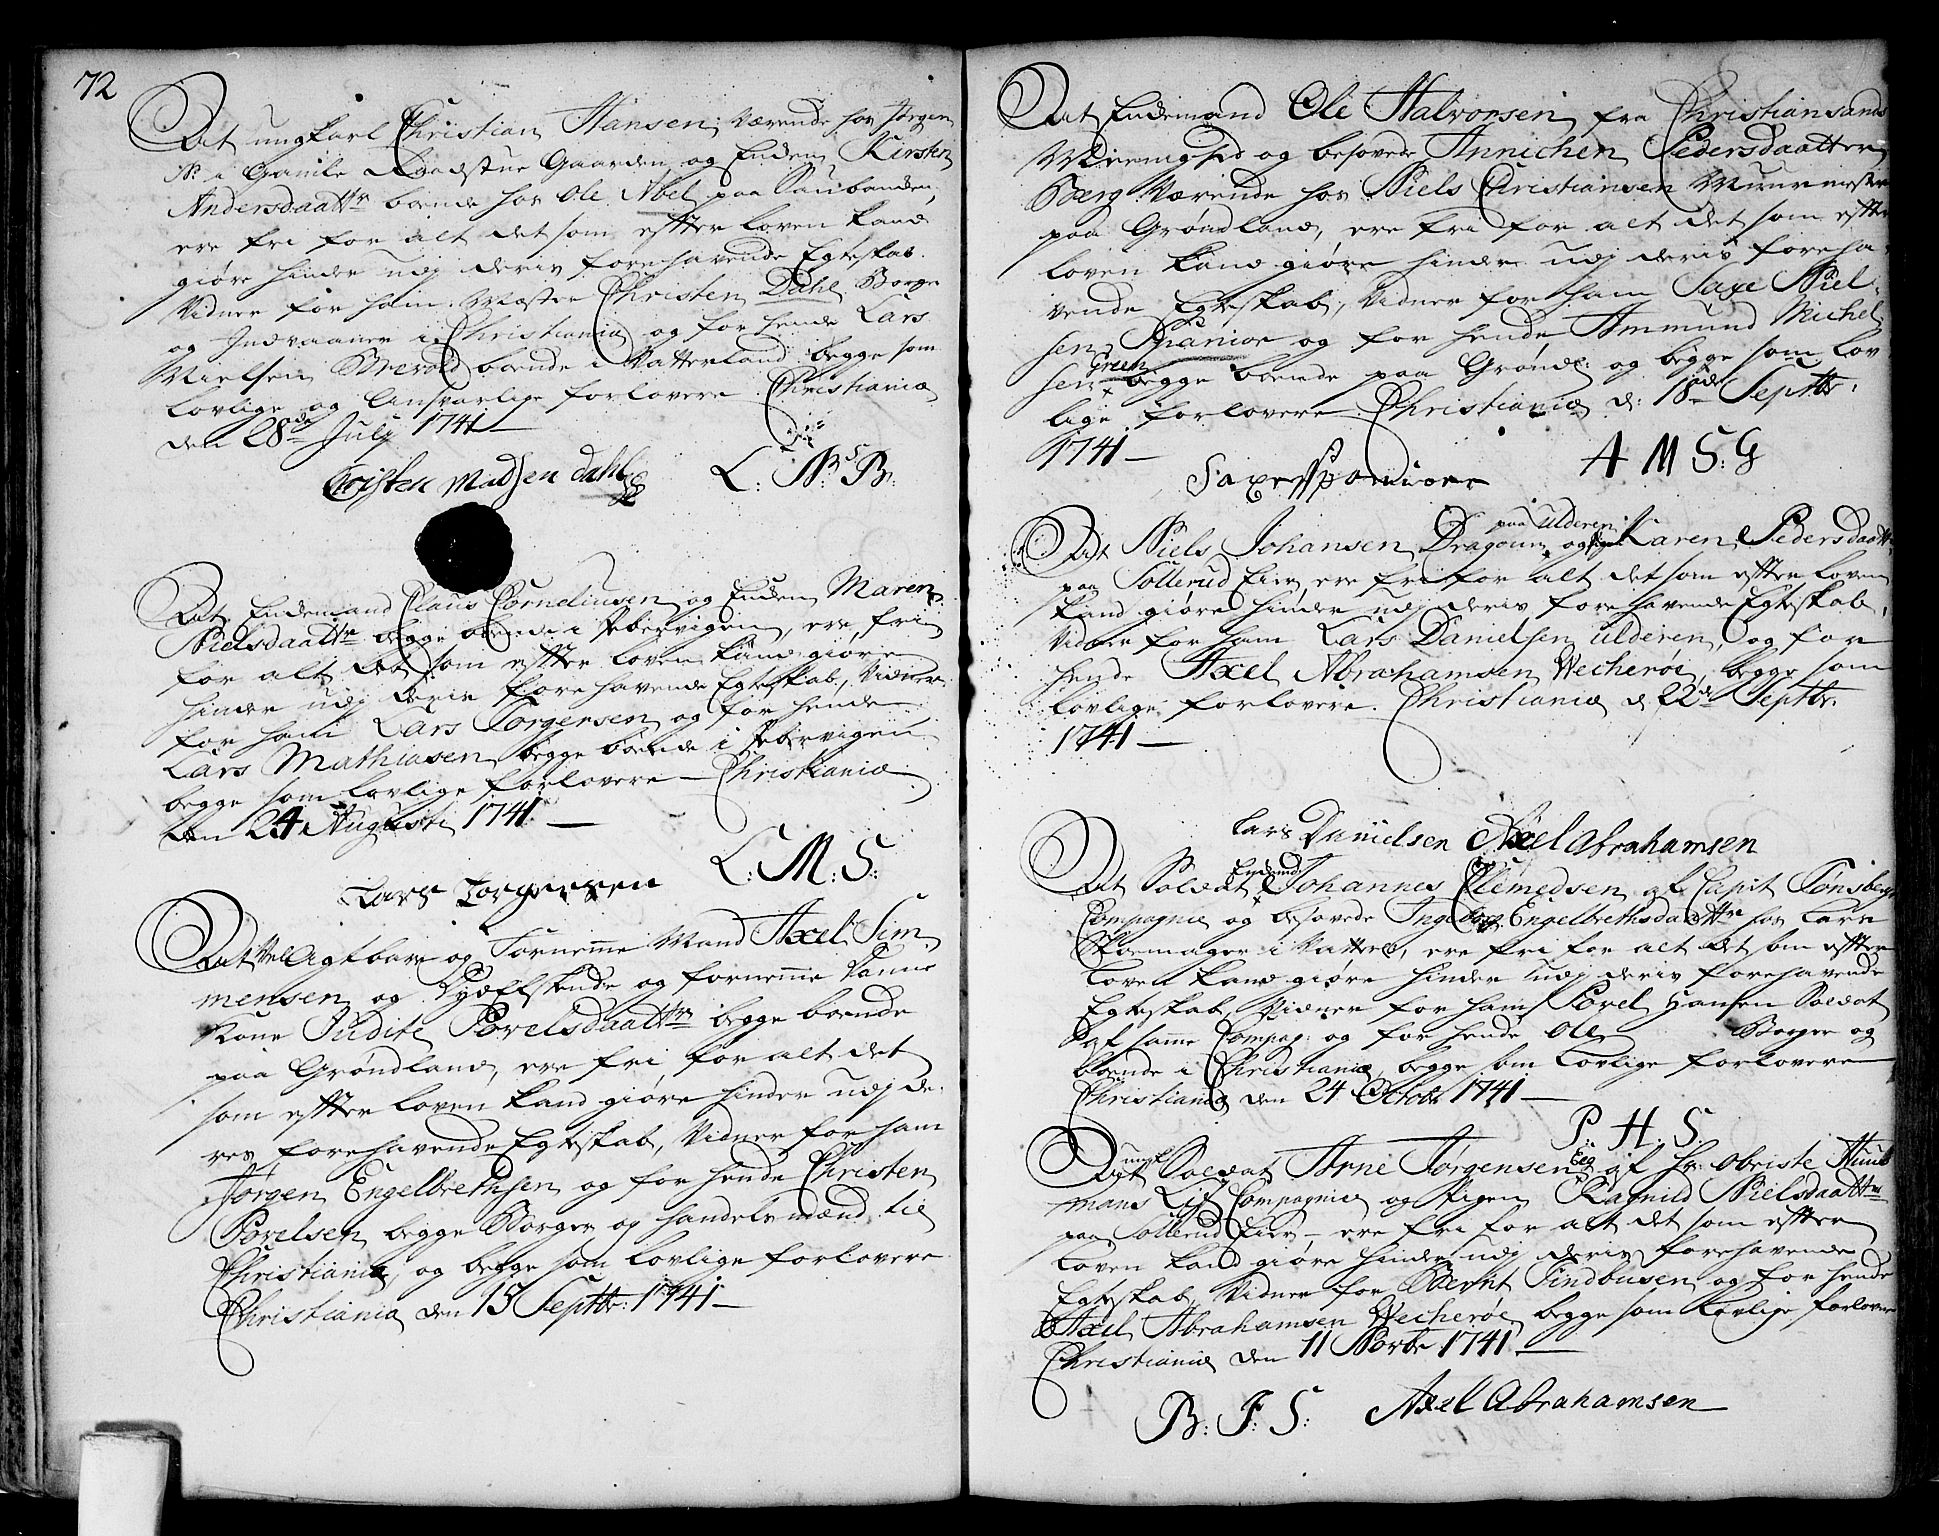 72
At ungkarl Christian Hansen, værende hos Jørgen
N: i Gamle Raadstue Gaarden og Enken Kirsten
Andersdaatter boende hos Ole Abel paa
ere fri for alt det som effter Loven kand
giøre hinder udj deris forehavende Egteskab.
Vidner for ham, Mester Christen Dahl Borger
og Indvaaner i Christiania og for hende Lars
Nielsen boende i Vatterland begge som
lovlige og Ansvarlige forlovere. Christiania
den 28de July 1741
Cristen Madsen Dahl L: N:S B:
At Enkemand Claus Corneliusen og Enken Maren
Nielsdaatter begge boende i Pebervigen, ere fri
for alt det som effter Loven kand giøre
hinder udj deris forehavende Egteskab, Vidner
for ham Lars Torgersen og for hende
Lars Mathiasen begge boende i Pebervigen
begge som lovlige forlovere Christiania
den 24 Augusti 1741
Lars Torgersen L: M: S:
At Vel Agtbare og Fornemme Mand Axel Sim-
mensen og Dydelskende og fornemme Danne
Kone Judite Povelsdaatter begge boende
paa Grønland, ere fri for alt det
som effter Loven kand giøre hinder udj de-
res forehavende Egteskab, Vidner for ham
Jørgen Engelbrethsen og for hende Christen
Povelsen begge Borger og handelsmænd til
Christiania, og begge som lovlige forlovere
Christiania den 15 Septbr: 1741
At Enkemand Ole Halvorsen fra Christiansands
og besovede Annichen Pedersdaatter
Berg værende hos Niels Christiansen Muurmester
paa Grønland, ere fri for alt det som effter
Loven kand giøre hinder udj deris foreha-
vende Egteskab, Vidner for ham Saxe Niel-
sen Spanior og for hende Ammund Michel-
sen Green begge boende paa Grønl: og begge som lov
lige forlovere Christiania d: 18de Septbr:
1741
Saxe Spaniore A M S: G
At Niels Johansen Dragoun paa Ulderen og Pige Karen Pedersdaatter
paa Sollerud Eier, ere fri for alt det som effter Loven
kand giøre hinder udj deris forehavende Egteskab,
Vidner for ham Lars Danielsen Ulderen, og for
hende Axel Abrahamsen Wecherøe, begge som
lovlige forlovere. Christiania d. 22de Septbr.
1741
Lars Danielsen Axel Abrahamsen
At Soldat Enkemd: Johannes Clemedsen af Capit Tønsbergs
Compagnie og besovede Ingeborg Engelbrethsdaatter hos Lars
Skomager i Vatterl, ere fri for alt det som effter
Loven kand giøre hinder udj deris forehavende
Egteskab, Vidner for ham Povel Hansen Soldat
af samme Compag: og for hende Ole Borger og
boende i Christiania, begge som lovlige forlovere
Christiania den 24 Octobr 1741
P: H: S:
At ungk Soldat Arne Jørgensen Eeg af Hr: Obriste Huus
mans Liv Compagnie og Pigen Ragnild Nielsdaatter
paa Sollerud Eier ere fri for alt det som effter
Loven kand giøre hinder udj deris forehavende
Egteskab, Vidner for Berent Findbusen og for hende
Axel Abrahamsen Wecherøe begge som lovlige forlovere
Christiania den 11 Novbr 1741
B: F: S: Axel Abrahamsen